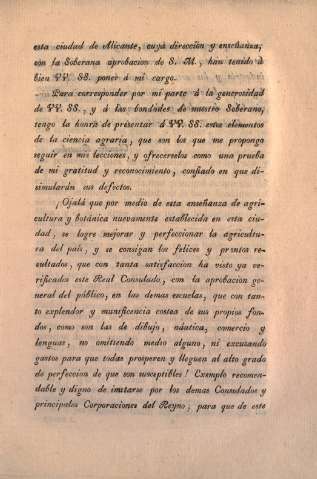 esta ciudad de Alicante, cuya direccion y enseñanza,
con la Soberana aprobacion de S. M., han tenido á
bien VV. SS. poner á mi cargo.
Para corresponder por mi parte á la generosidad
de VV. SS., y á las bondades de nuestro Soberano,
tengo la honra de presentar á VV. SS. estos elementos
de la ciencia agraria, que son los que me propongo
seguir en mis lecciones, y ofrecerselos como una prueba
de mi gratitud y reconocimiento, confiado en que di-
simularán sus defectos.
¡Ojalá que por medio de esta enseñanza de agri-
cultura y botánica nuevamente establecida en esta ciu-
dad, se logre mejorar y perfeccionar la agricultu-
ra del país, y se consigan los felices y prontos re-
sultados, que con tanta satisfaccion ha visto ya ve-
rificados este Real Consulado, con la aprobacion ge-
neral del público, en las demas escuelas, que con tan-
to explendor y munificencia costea de sus propios fon-
dos, como son las de dibujo, náutica, comercio y
lenguas, no omitiendo medio alguno, ni excusando
gastos para que todas prosperen y lleguen al alto grado
de perfeccion de que son susceptibles! Exemplo recomen-
dable y digno de imitarse por los demas Consulados y
principales Corporaciones del Reyno; para que de este